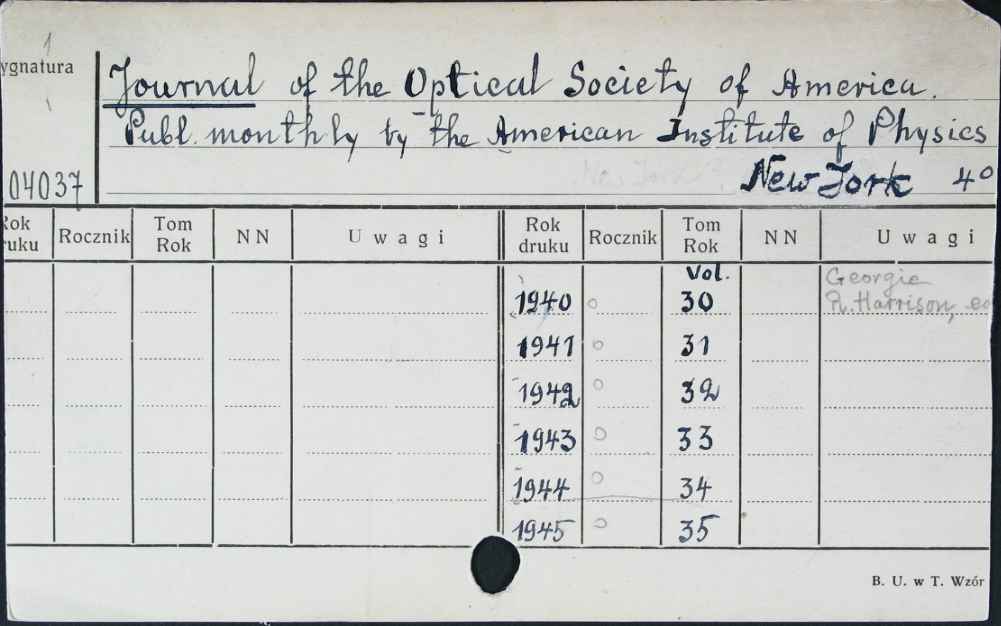 ygnatura
Journal of the Optical Society of America.
Publ. monthly by the American Institute of Physics
New Jork 4°
04037
Rok ruku Rocznik Tom Rok NN Uwagi Rok druku Rocznik Tom Rok NN Uwagi
Vol. Georgie
1940 ○ 30 R. Harrison, ed
1941 ○ 31
1942 ○ 32
1943 ○ 33
1944 ○ 34
1945 ○ 35
B. U. w T. Wzór